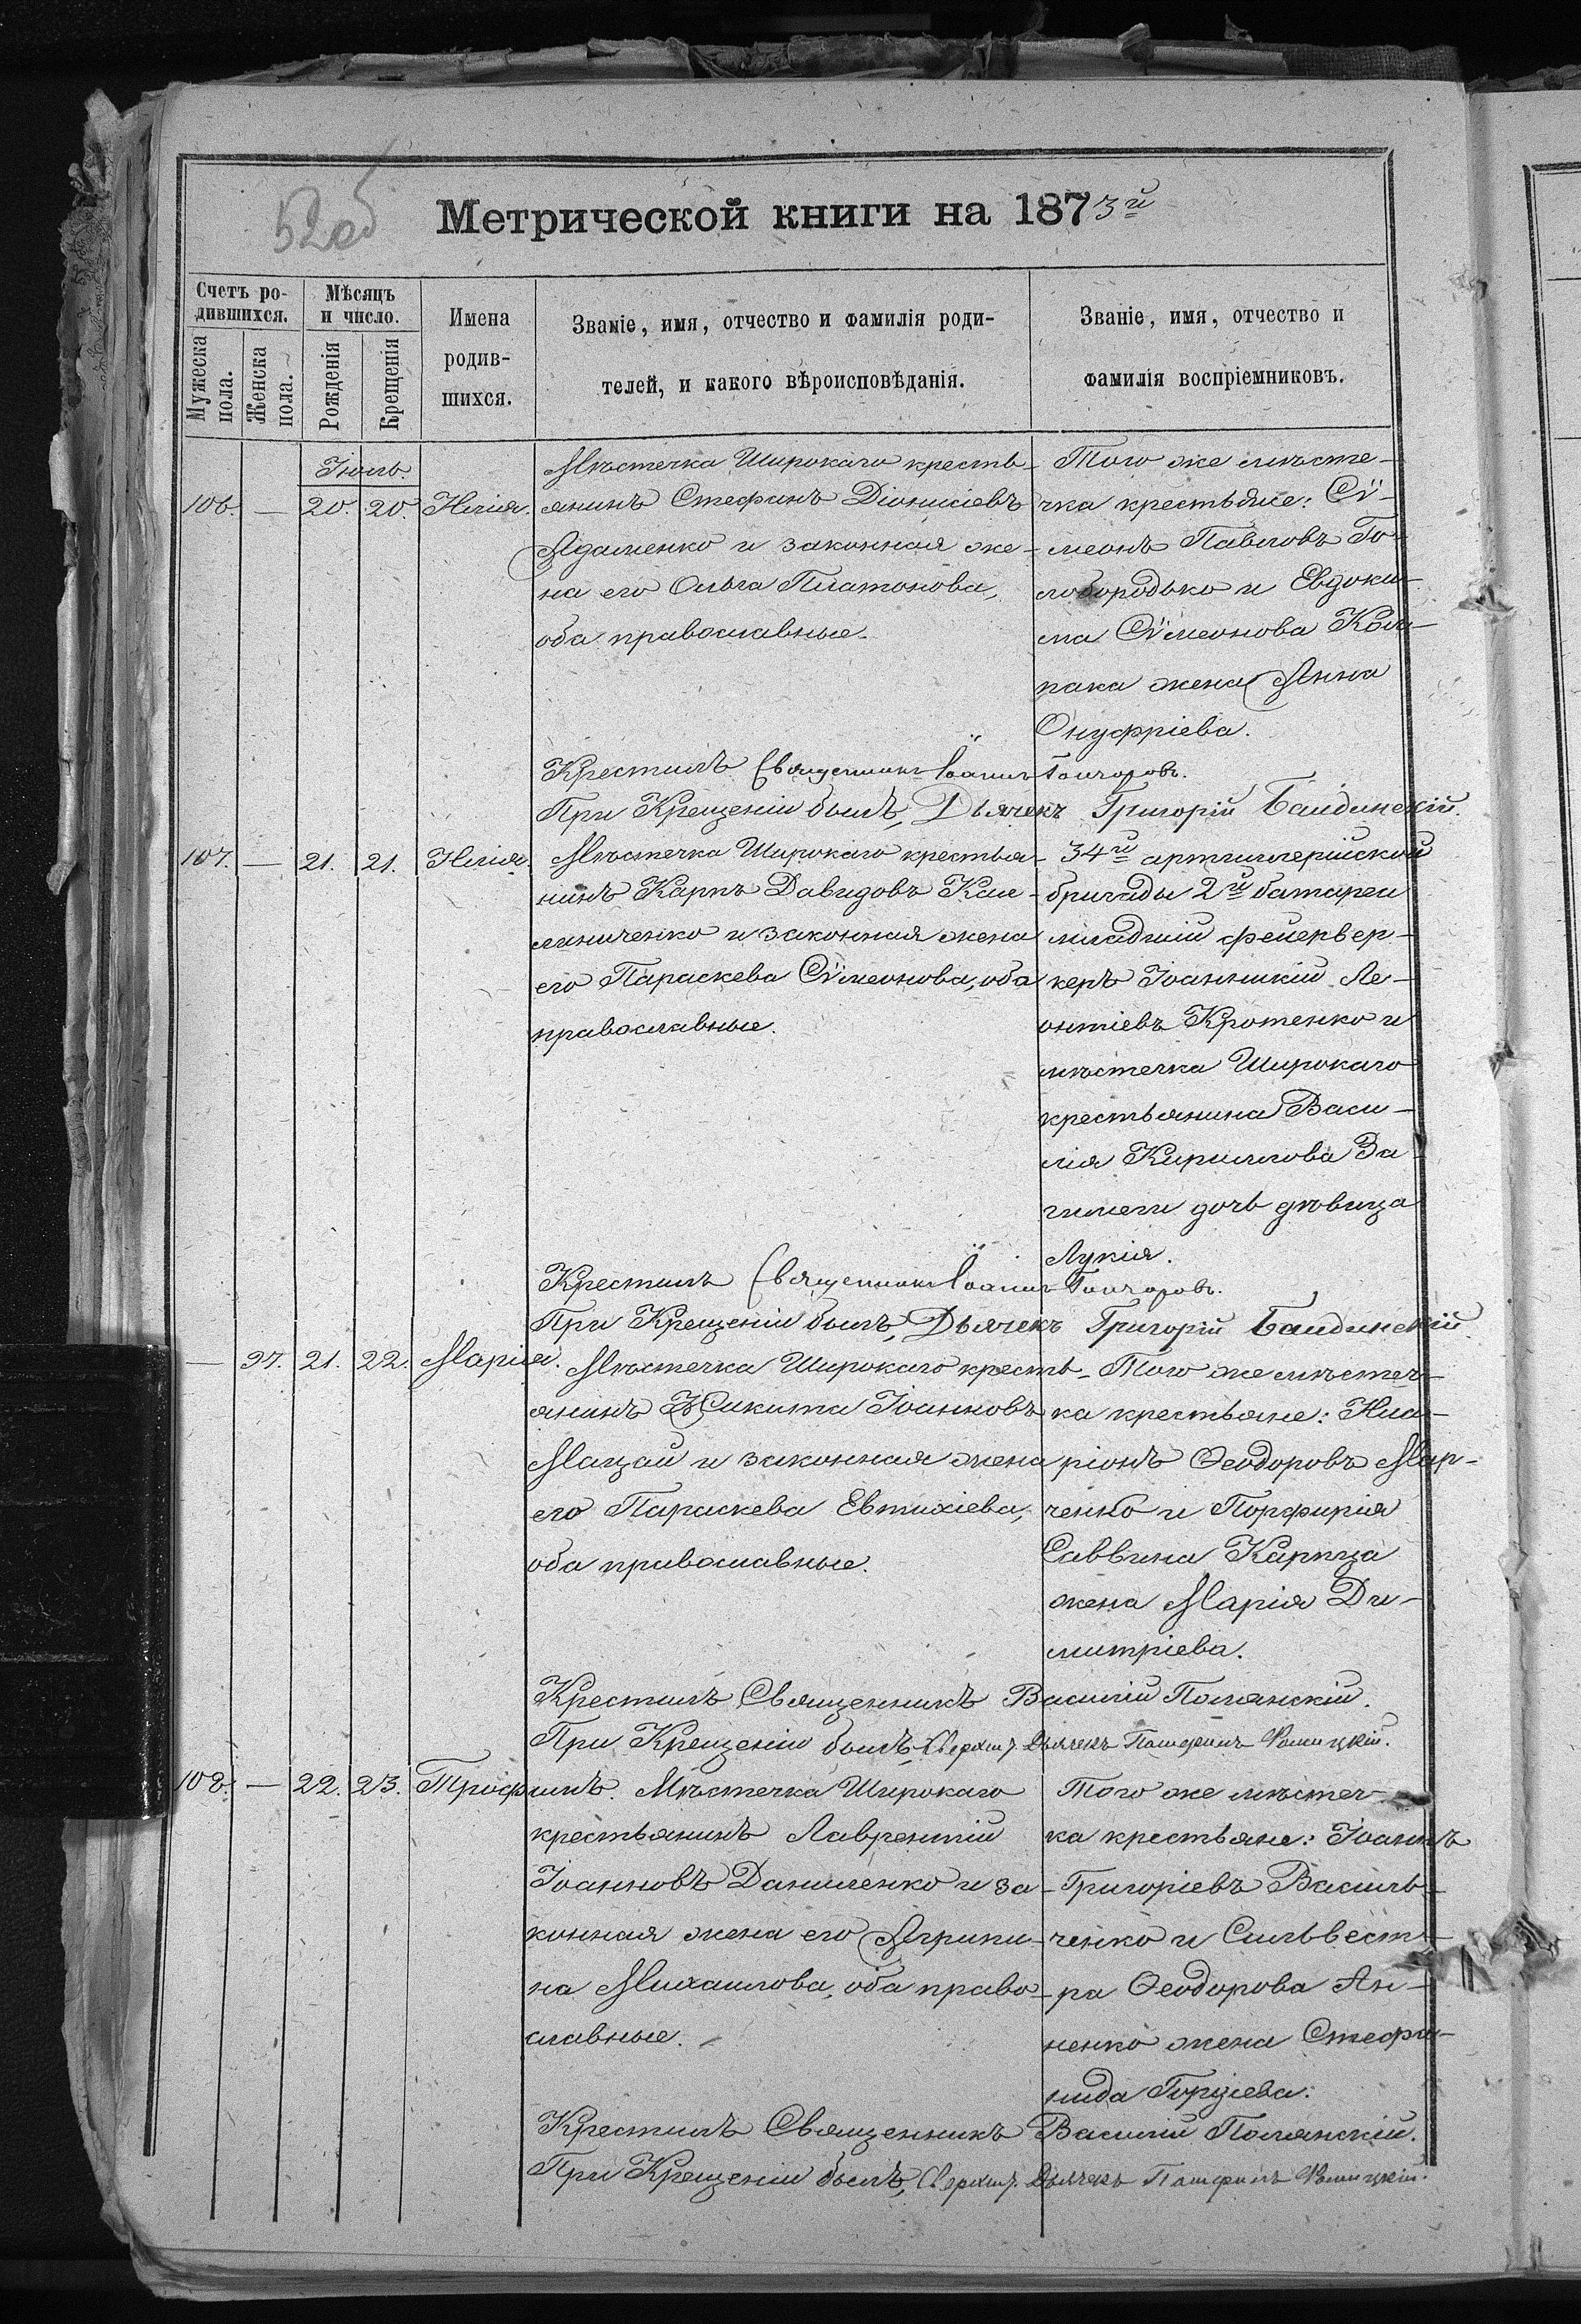 52об
Метрической книги на 1873й
Счетъ ро-
дившихся.
Мѣсяцъ
и число.
Имена
родив-
шихся.
Званіе, имя, отчество и фамилія роди-
телей, и какого вѣроисповѣданія.
Званіе, имя, отчество и
фамилія воспріемниковъ.
Мужеска
пола.
Женска
пола.
Рожденія
Крещенія
Іюль.
106. — 20. 20. Илія.
Мѣстечка Широкаго кресть-
янинъ Стефанъ Діонисіевъ
Адаменко и законная же-
на его Ольга Платонова,
оба православные.
Того же мѣсте-
чка крестьяне: Сѵ-
меонъ Павловъ Го-
лобородько и Евдоки-
ма Сѵмеонова Кол-
пака жена Анна
Онуфріева.
Крестилъ Священникъ Іоаннъ Гончаровъ.
При Крещеніи былъ, Дьячекъ Григорій Байдинскій.
107. — 21. 21. Илія.
Мѣстечка Широкаго крестья-
нинъ Карпъ Давидовъ Кали-
линиченко и законная жена
его Параскева Сѵмеонова, оба
православные.
34й артиллерійской
бригады 2й батареи
младшій фейервер-
керъ Іоанникій Ле-
онтіевъ Кротенко и
мѣстечка Широкаго
крестьянина Васи-
лія Кириллова За-
гимеги дочь дѣвица
Лукія.
Крестилъ Священникъ Іоаннъ Гончаровъ.
При Крещеніи былъ, Дьячекъ Григорій Байдинскій.
— 97. 21. 22. Марія.
Мѣстечка Широкаго кресть-
янинъ Никита Іоанновъ
Мацай и законная жена
его Параскева Евтихіева,
оба православные.
Того же мѣстеч-
ка крестьяне: Ила-
ріонъ Ѳеодоровъ Мар-
ченко и Порфирія
Саввина Карпца
жена Марія Ди-
митріева.
Крестилъ Священникъ Василій Полянскій.
При Крещеніи былъ Сверхшт. Дьячекъ Памфилъ
108. — 22. 23. Трофимъ.
Мѣстечка Широкаго
крестьянинъ Лаврентій
Іоанновъ Даниленко и за-
конная жена его Агрипи-
на Михаилова, оба право-
славные.
Того же мѣстеч-
ка крестьяне: Іоаннъ
Григоріевъ Василь-
ченко и Сильвест-
ра Ѳеодорова Ан-
ненко жена Стефа-
нида Гордіева.
Крестилъ Священникъ Василій Полянскій.
При Крещеніи былъ, Сверхшт. Дьячекъ Памфилъ